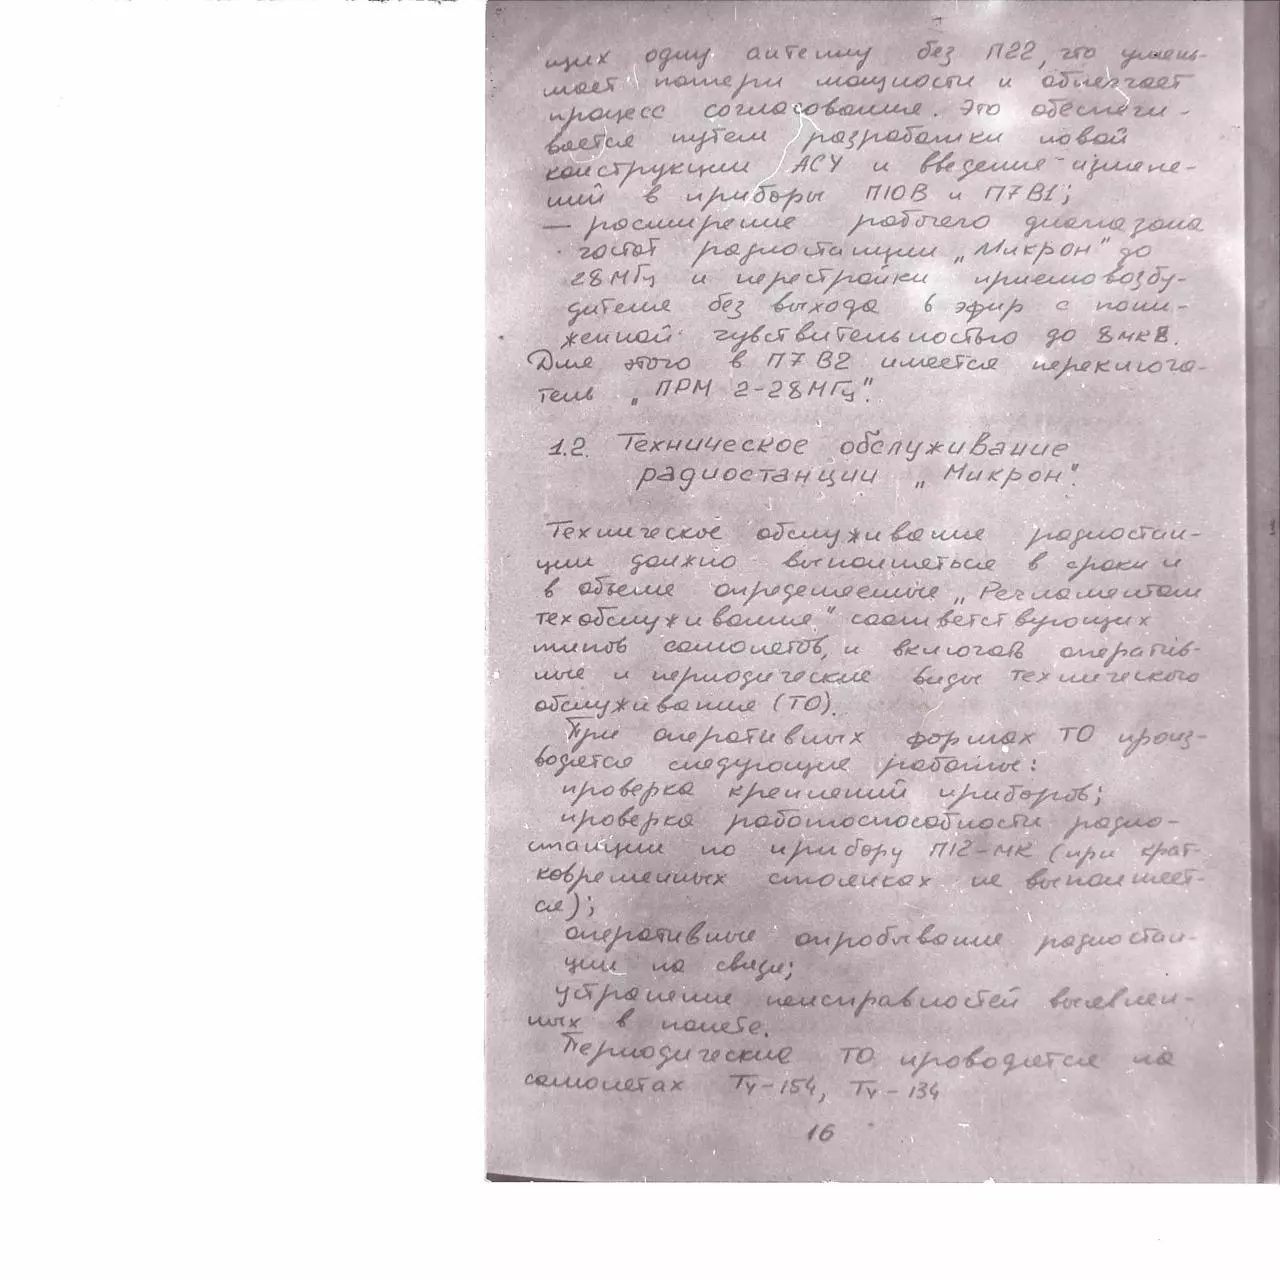 щих одну антенну без П22, что умень-
шает потери мощности и облегчает
процесс согласования. Это обеспечи-
вается путем разработки новой
конструкции АСУ и введение измене-
ний в приборы П10В и П7В1;
— расширение рабочего диапазона
частот радиостанции „Микрон" до
28 МГц и перестройки приемовозбу-
дителя без выхода в эфир с пони-
женной чувствительностью до 8 мкВ.
Для этого в П7В2 имеется переключа-
тель „ПРМ 2-28МГц".
1.2. Техническое обслуживание
радиостанции „Микрон".
Техническое обслуживание радиостан-
ции должно выполняться в сроки и
в объеме определенные „Регламентом
техобслуживания" соответствующих
типов самолетов, и включать оператив-
ные и периодические виды технического
обслуживания (ТО).
При оперативных формах ТО произ-
водятся следующие работы:
проверка креплений приборов;
проверка работоспособности радио-
станции по прибору П12-МК (при крат-
ковременных стоянках не выполняет-
ся);
оперативные опробывание радиостан-
ции на связь;
устранение неисправностей выявлен-
ных в полете.
Периодические ТО проводятся на
самолетах Ту-154, Ту-134
16